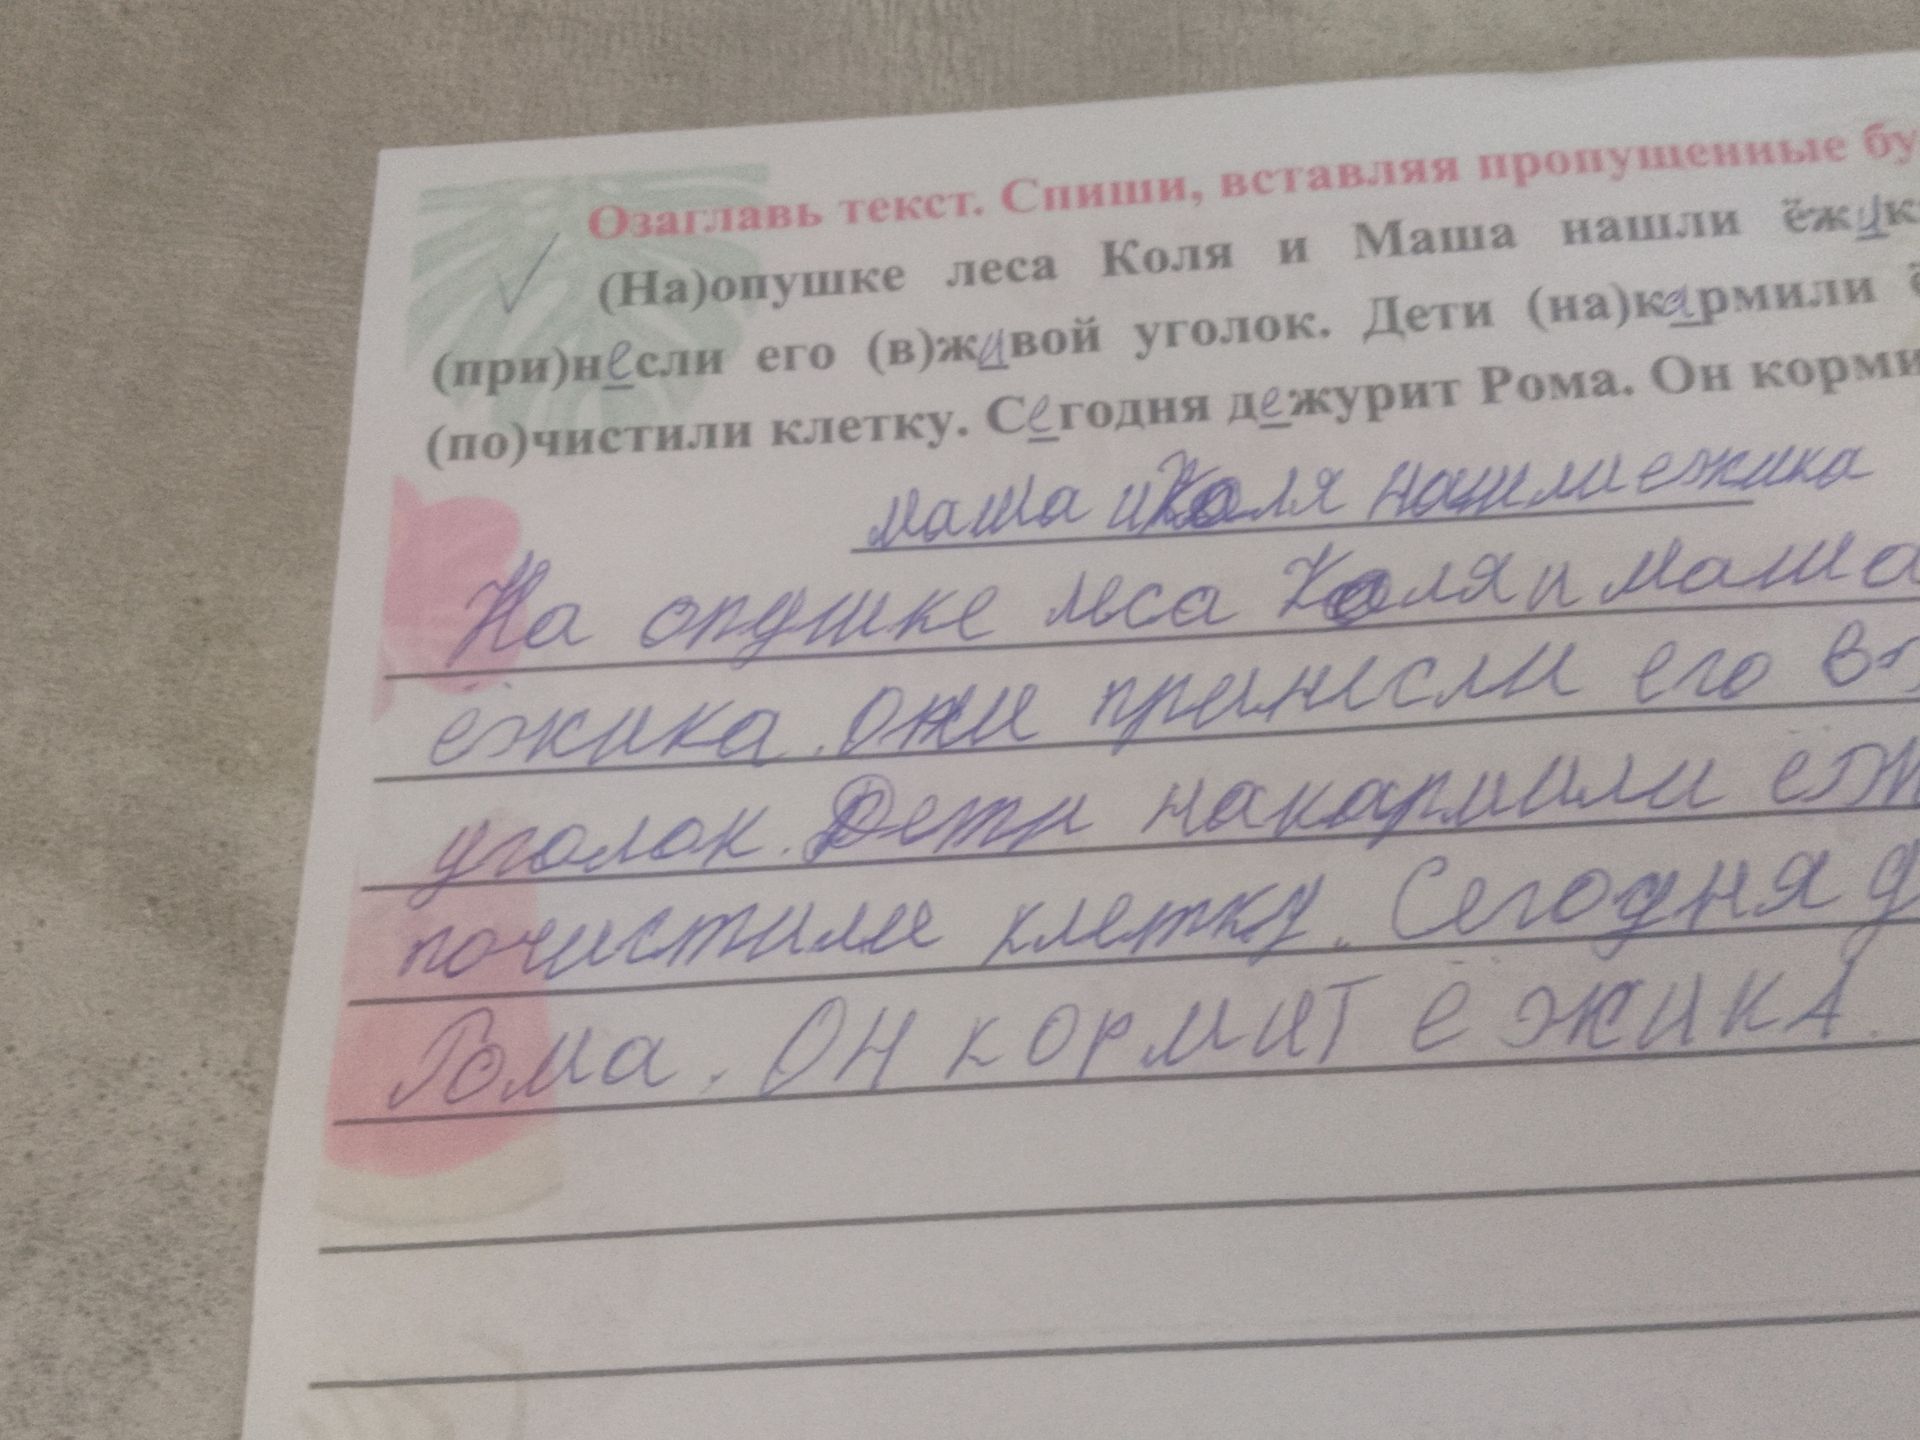 Озаглавь текст. Спиши, вставляя пропущенные бу
(На)опушке леса Коля и Маша нашли ёжик
(при)несли его (в)живой уголок. Дети (на)кармили ё
(по)чистили клетку. Сегодня дежурит Рома. Он корми
маша и Коля нашли ежика
На опушке леса Коля и маша
ёжика. они принесли его в
уголок. Дети накармили ёж
почистили клетку. Сегодня д
Рома. Он кормит ёжика.